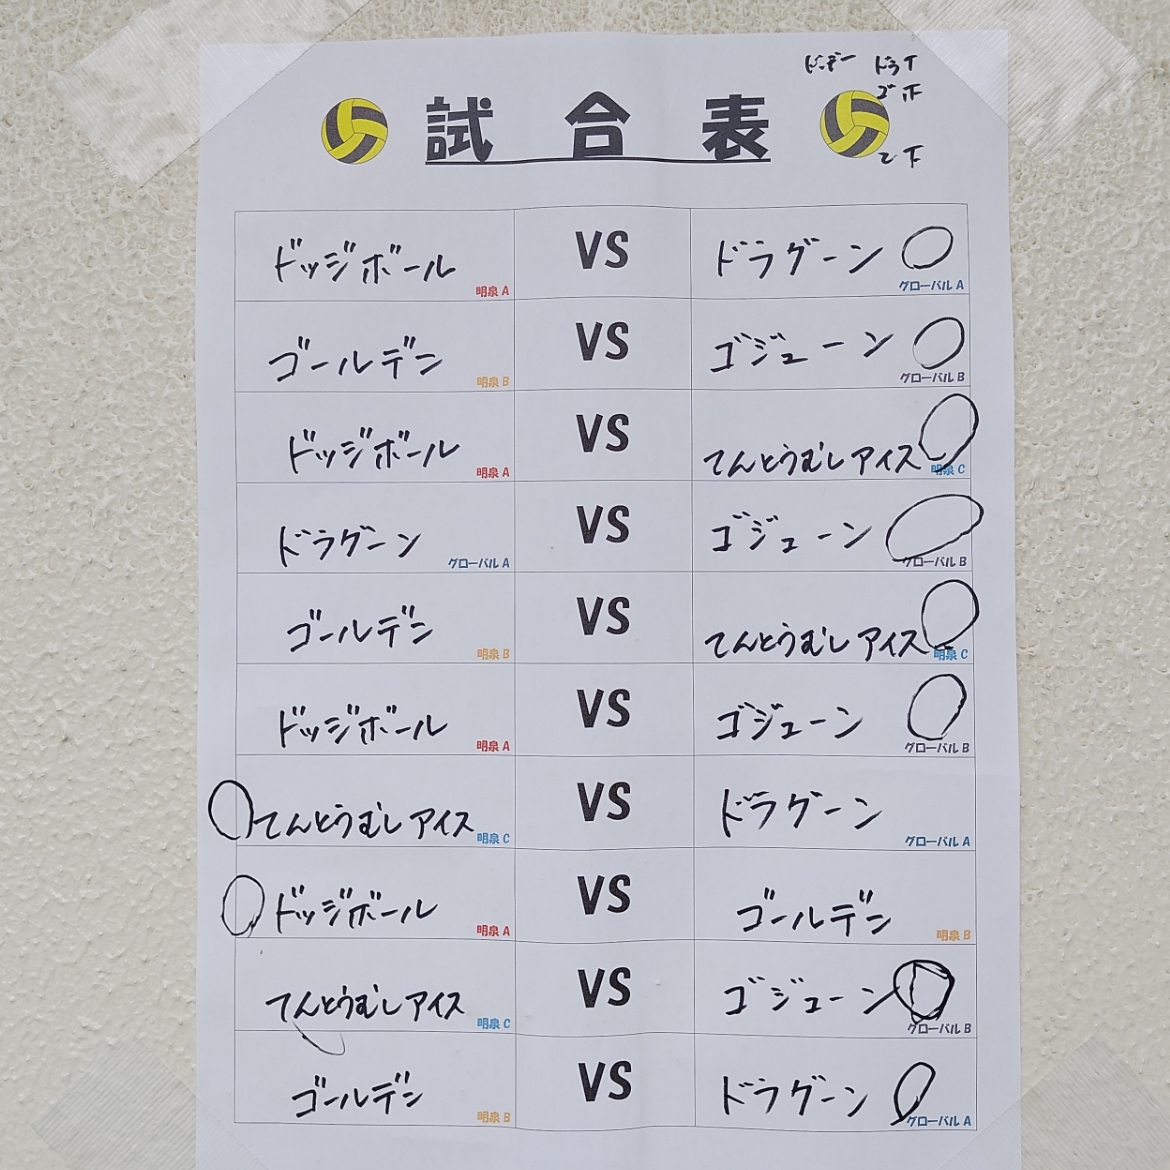 試合表
ドッジボール 明泉 A VS ドラグーン グローバル A
ゴールデン 明泉 B VS ゴジューン グローバル B
ドッジボール 明泉 A VS てんとうむしアイス 明泉 C
ドラグーン グローバル A VS ゴジューン グローバル B
ゴールデン 明泉 B VS てんとうむしアイス 明泉 C
ドッジボール 明泉 A VS ゴジューン グローバル B
てんとうむしアイス 明泉 C VS ドラグーン グローバル A
ドッジボール 明泉 A VS ゴールデン 明泉 B
てんとうむしアイス 明泉 C VS ゴジューン グローバル B
ゴールデン 明泉 B VS ドラグーン グローバル A